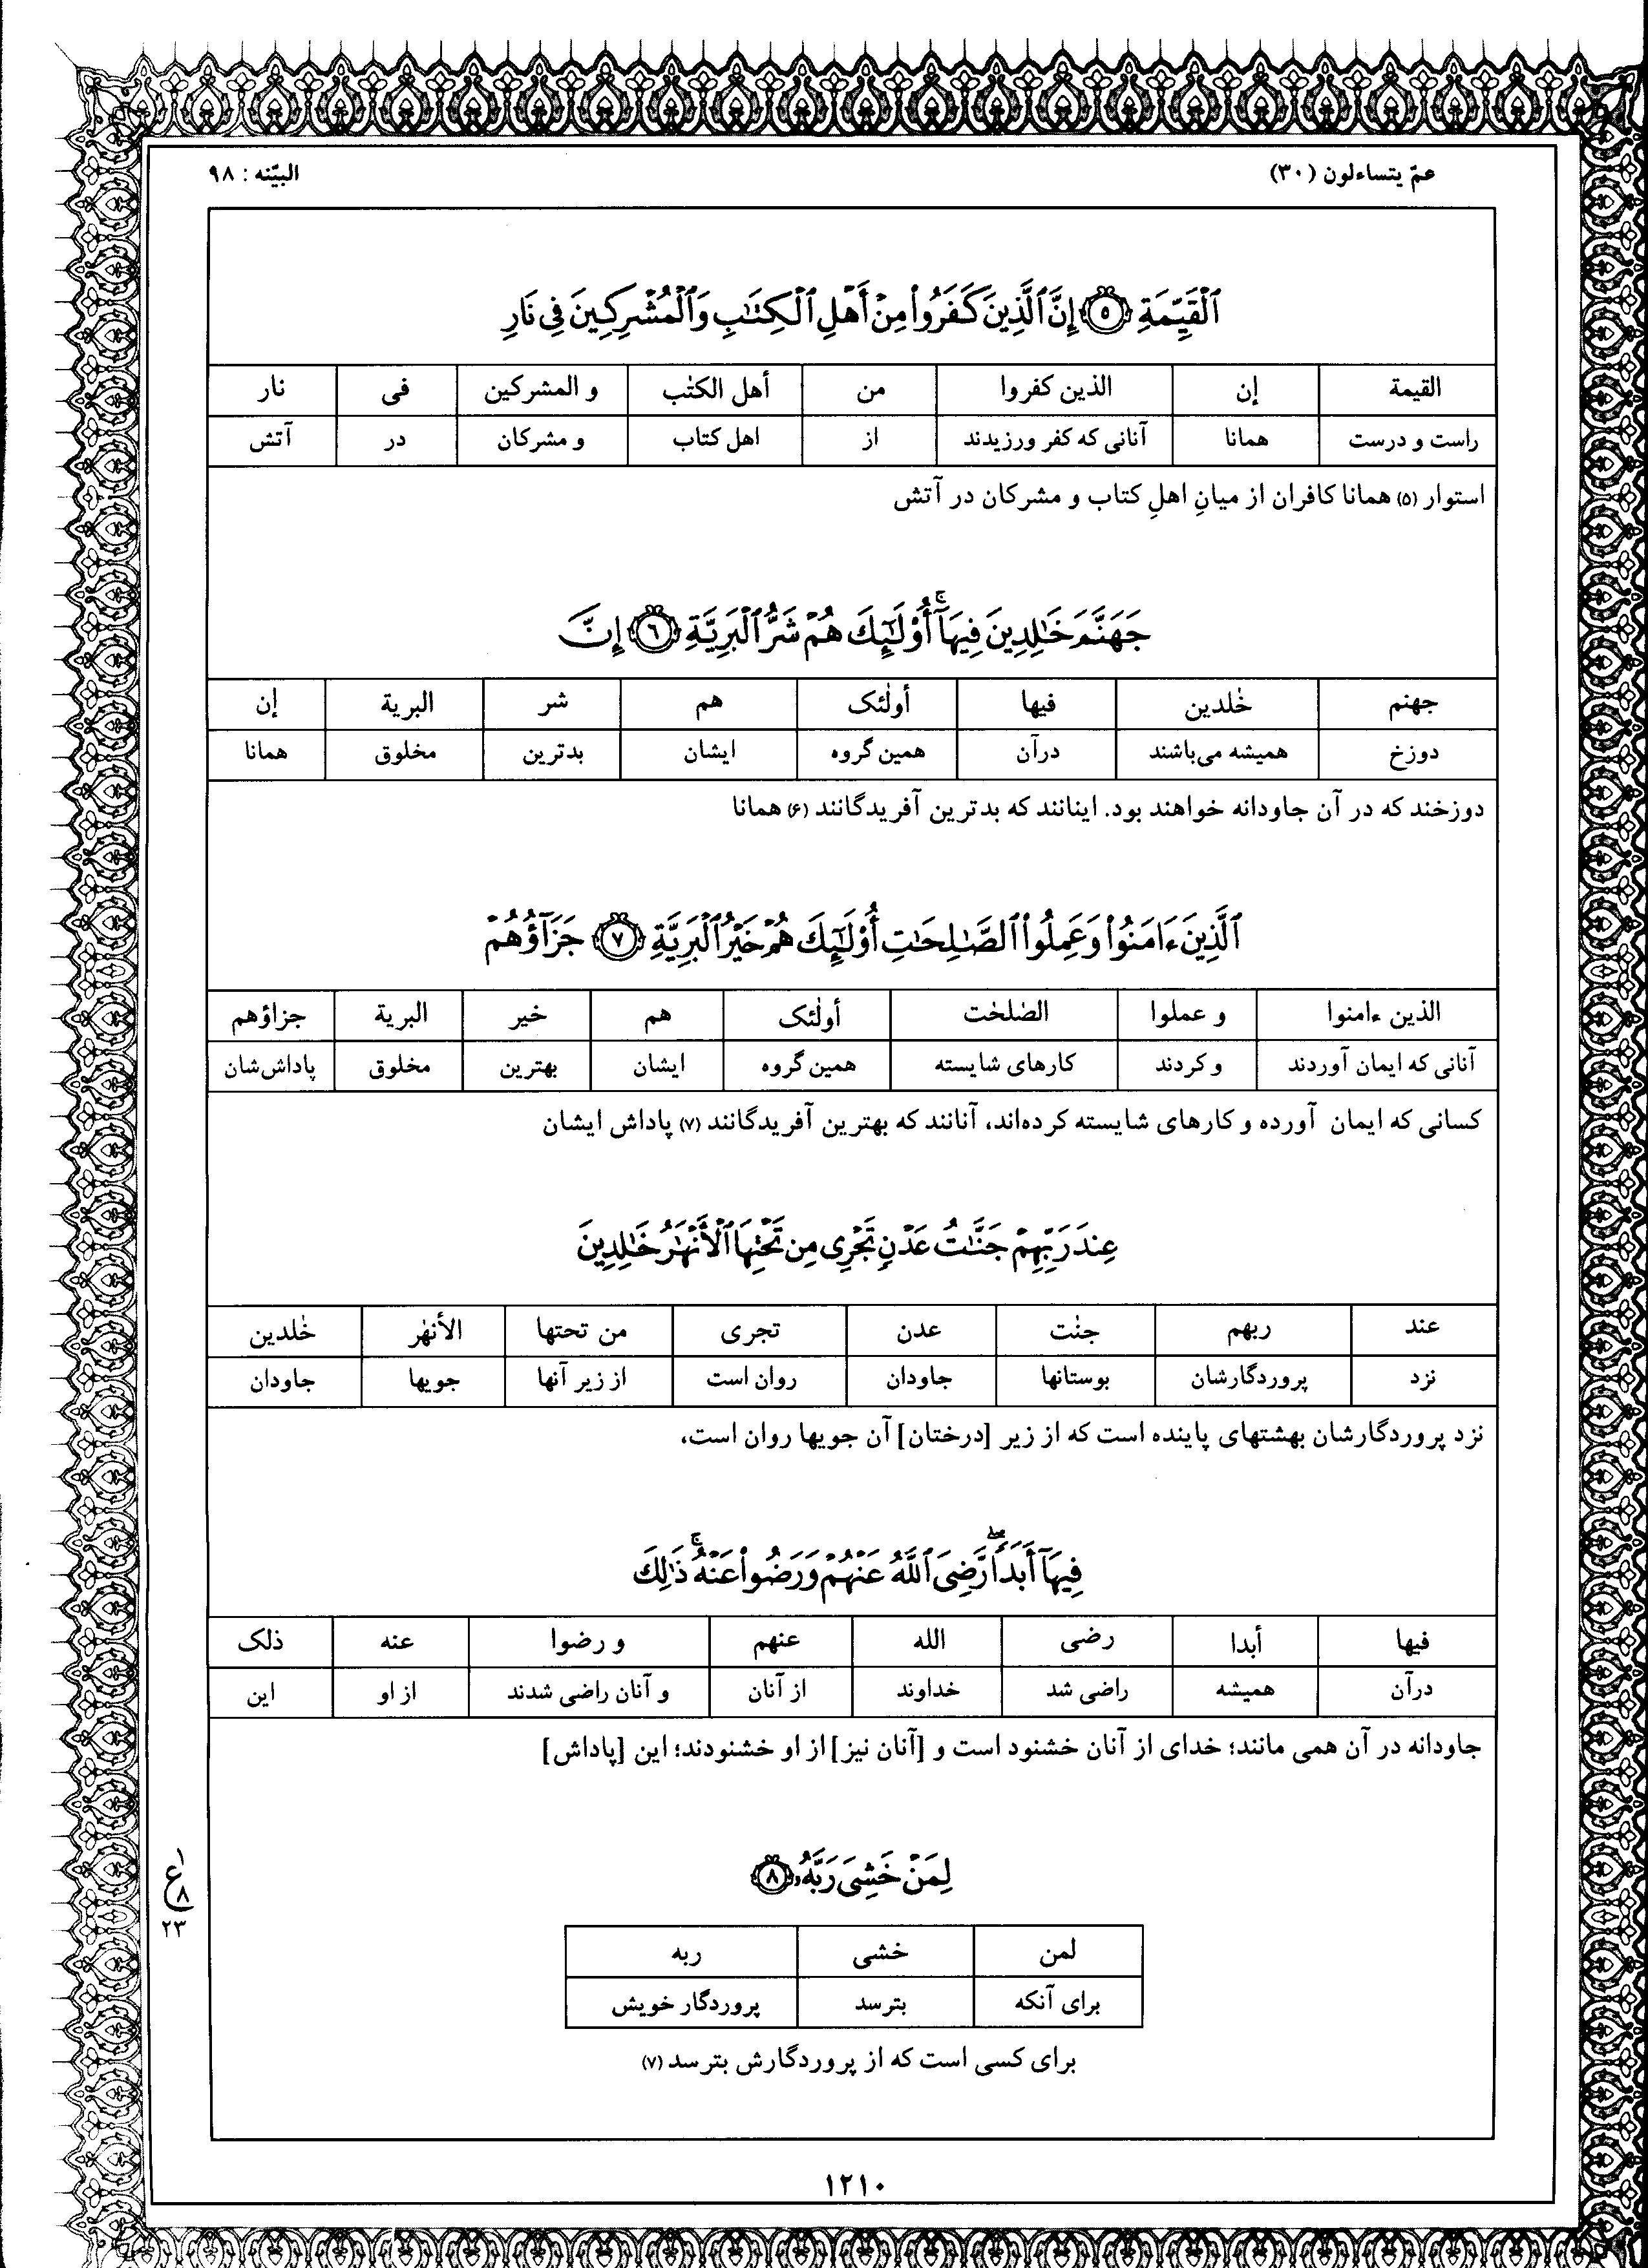 عمّ یتساءلون (۳۰)
البیّنه : ۹۸
ٱلۡقَيِّمَةِ ۝٥ إِنَّ ٱلَّذِينَ كَفَرُواْ مِنۡ أَهۡلِ ٱلۡكِتَٰبِ وَٱلۡمُشۡرِكِينَ فِي نَارِ
القیمة إن الذین کفروا من أهل الکتٰب و المشرکین فی نار
راست و درست همانا آنانی که کفر ورزیدند از اهل کتاب و مشرکان در آتش
استوار (۵) همانا کافران از میانِ اهلِ کتاب و مشرکان در آتش
جَهَنَّمَ خَٰلِدِينَ فِيهَآۚ أُوْلَٰٓئِكَ هُمۡ شَرُّ ٱلۡبَرِيَّةِ ۝٦ إِنَّ
جهنم خٰلدین فیها أولٰئک هم شر البریة إن
دوزخ همیشه می‌باشند درآن همین گروه ایشان بدترین مخلوق همانا
دوزخند که در آن جاودانه خواهند بود. اینانند که بدترین آفریدگانند (۶) همانا
ٱلَّذِينَ ءَامَنُواْ وَعَمِلُواْ ٱلصَّٰلِحَٰتِ أُوْلَٰٓئِكَ هُمۡ خَيۡرُ ٱلۡبَرِيَّةِ ۝٧ جَزَآؤُهُمۡ
الذین ءامنوا و عملوا الصٰلحٰت أولٰئک هم خیر البریة جزاؤهم
آنانی که ایمان آوردند و کردند کارهای شایسته همین گروه ایشان بهترین مخلوق پاداش‌شان
کسانی که ایمان آورده و کارهای شایسته کرده‌اند، آنانند که بهترین آفریدگانند (۷) پاداش ایشان
عِندَ رَبِّهِمۡ جَنَّٰتُ عَدۡنٖ تَجۡرِي مِن تَحۡتِهَا ٱلۡأَنۡهَٰرُ خَٰلِدِينَ
عند ربهم جنٰت عدن تجری من تحتها الأنهٰر خٰلدین
نزد پروردگارشان بوستانها جاودان روان است از زیر آنها جویها جاودان
نزد پروردگارشان بهشتهای پاینده است که از زیر [درختان] آن جویها روان است،
فِيهَآ أَبَدٗاۖ رَّضِيَ ٱللَّهُ عَنۡهُمۡ وَرَضُواْ عَنۡهُۚ ذَٰلِكَ
فیها أبدا رضی الله عنهم و رضوا عنه ذلک
درآن همیشه راضی شد خداوند از آنان و آنان راضی شدند از او این
جاودانه در آن همی مانند؛ خدای از آنان خشنود است و [آنان نیز] از او خشنودند؛ این [پاداش]
لِمَنۡ خَشِيَ رَبَّهُۥ ۝٨
ع
۱
۸
۲۳
لمن خشی ربه
برای آنکه بترسد پروردگار خویش
برای کسی است که از پروردگارش بترسد (۷)
۱۲۱۰